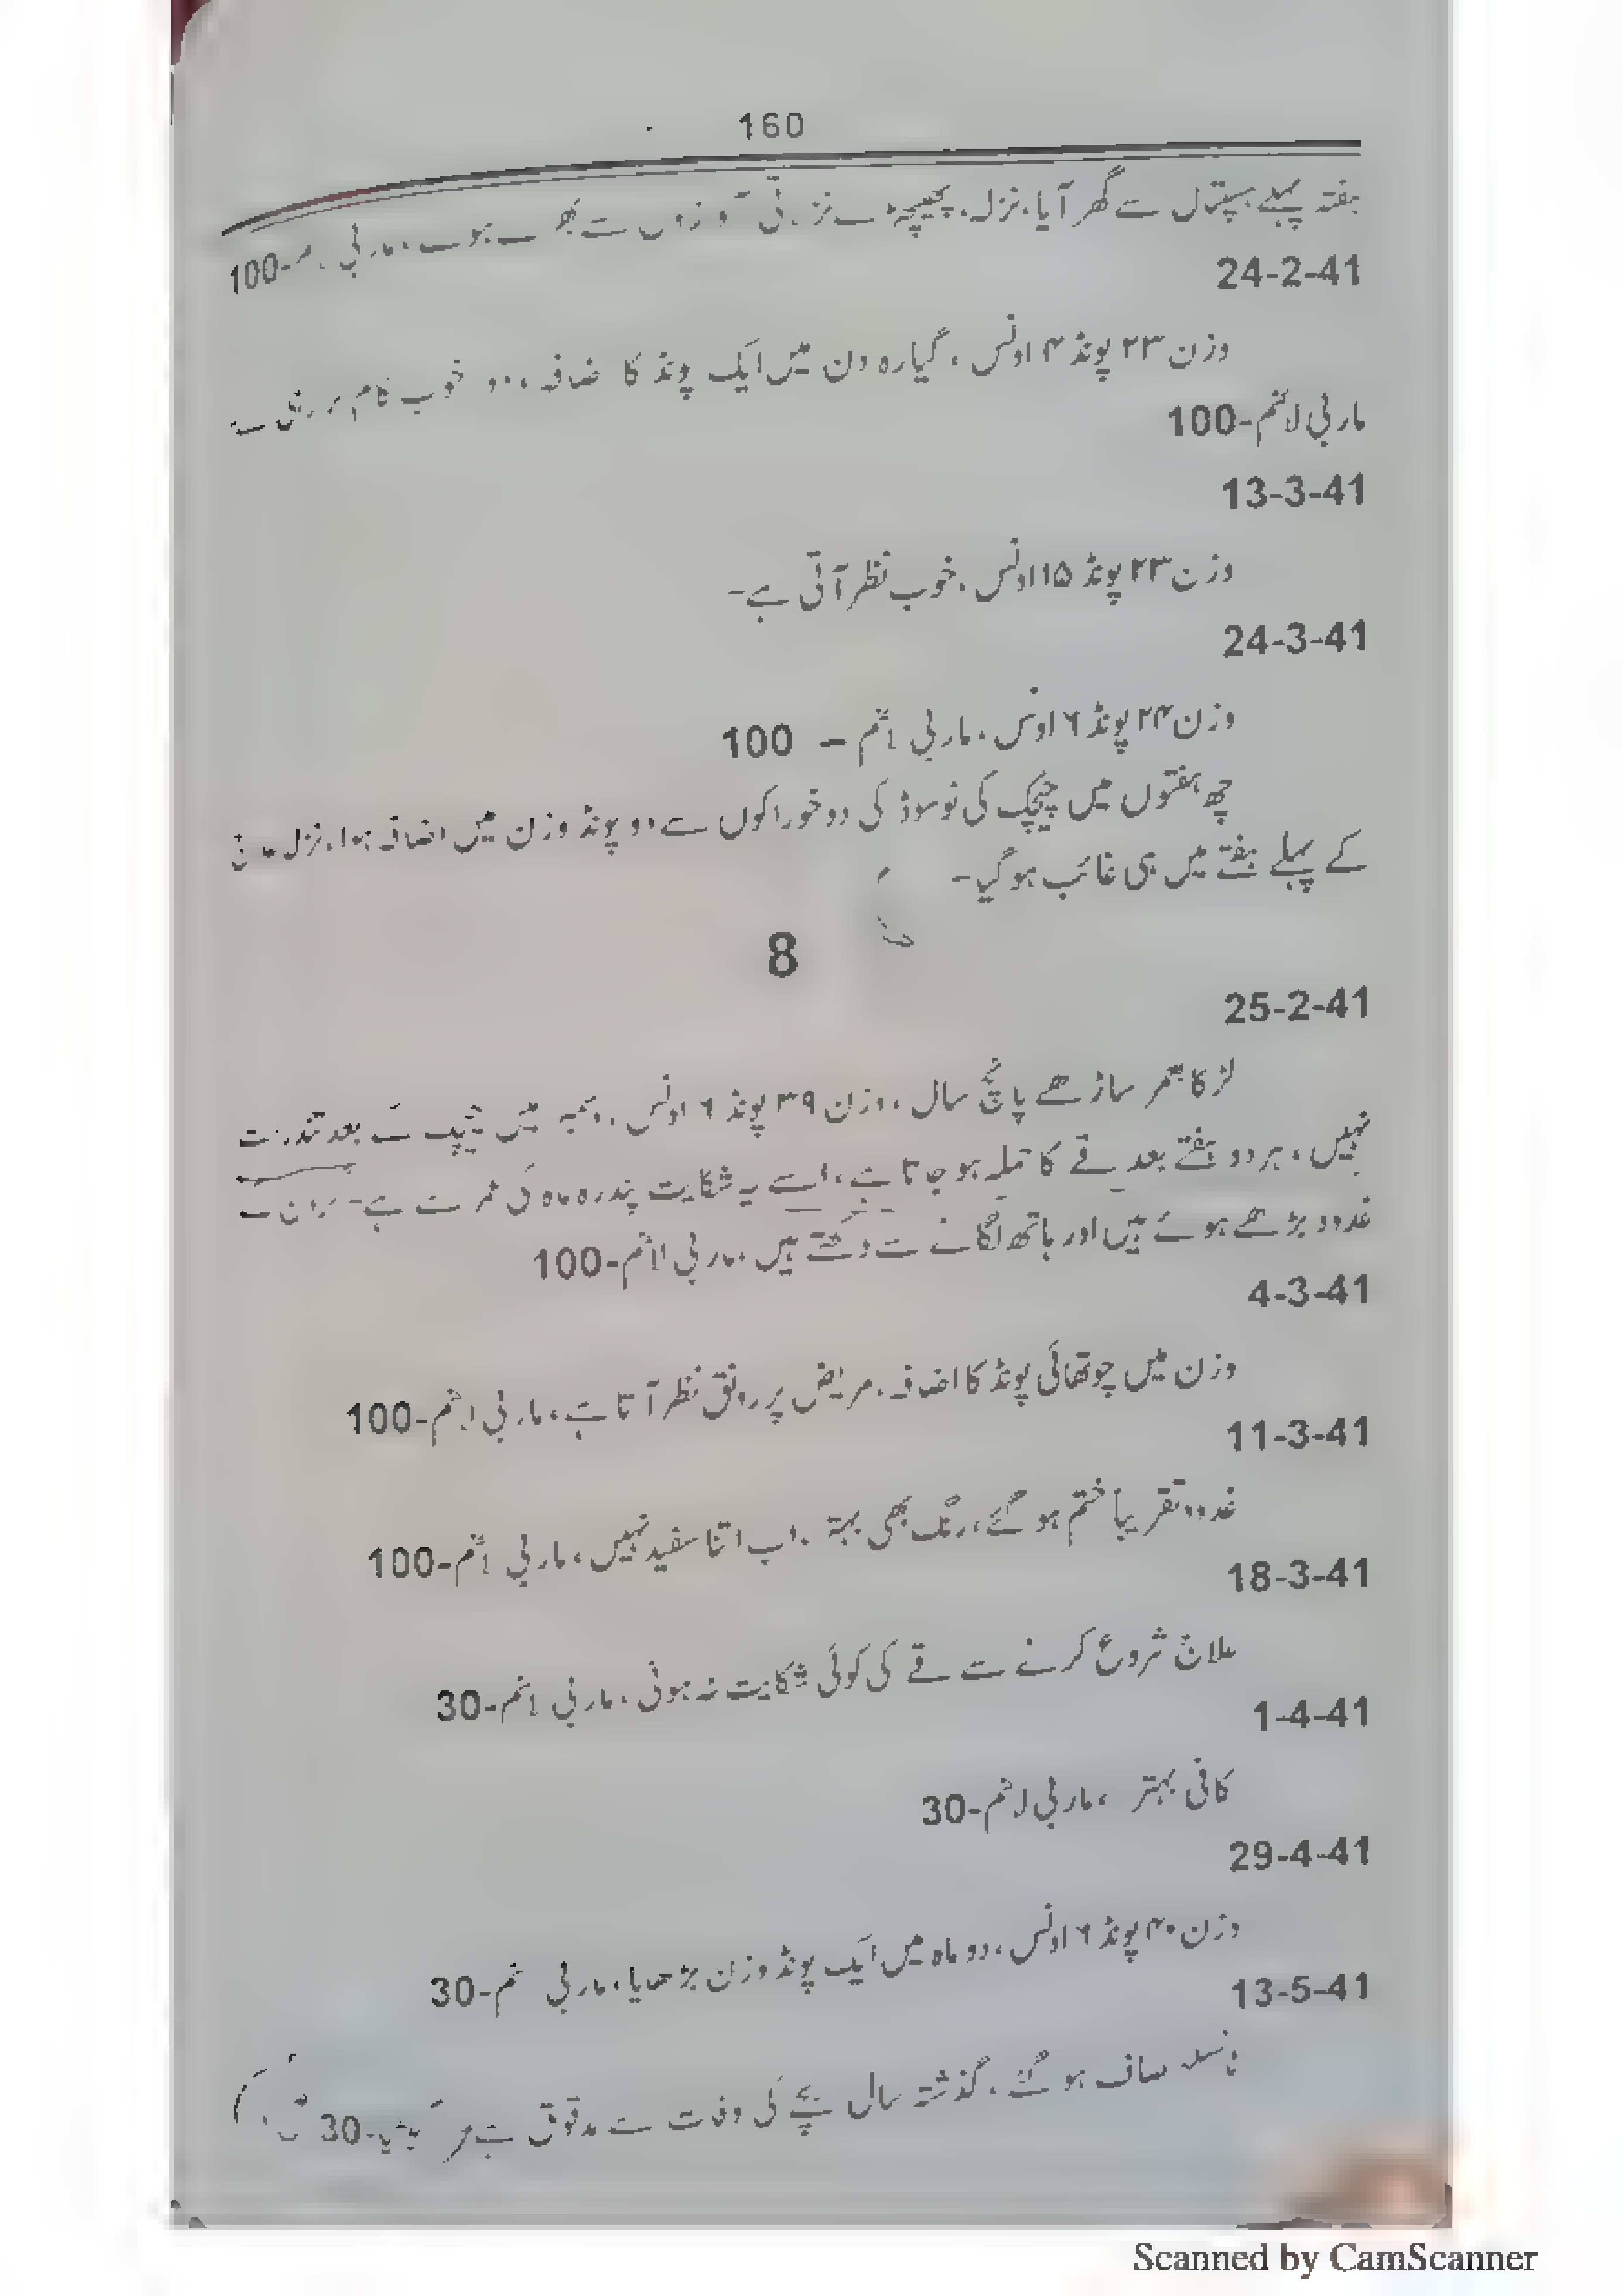 160
ہفتہ پہلے ہسپتال سے گھر آیا، نزلہ، نزلاتی سے ہوئے، ماربی -100
24-2-41
وزن ۲۳ پونڈ ۴ اونس، گیارہ دن میں ایک پونڈ کا اضافہ، خوب کام
ماربی لائنم-100
13-3-41
وزن ۲۳ پونڈ ۱۵ اونس، خوب نظر آتی ہے۔
24-3-41
وزن ۲۴ پونڈ ۶ اونس، ماربی – 100
چھ ہفتوں میں چیچک کی نوسوڈ کی دو خوراکوں سے دو پونڈ وزن میں اضافہ ہوا، نزلہ
کے پہلے ہفتے میں ہی غائب ہو گیا۔
8
25-2-41
لڑکا بعمر ساڑھے پانچ سال، وزن ۳۹ پونڈ ۶ اونس، میں کے بعد تندرست
نہیں، ہر دو ہفتے بعد قے کا حملہ ہو جاتا ہے، اسے یہ شکایت پندرہ ماہ کی عمر سے ہے۔
غدود بڑھے ہوئے ہیں اور ہاتھ لگانے سے دکھتے ہیں، ماربی لائنم-100
4-3-41
وزن میں چوتھائی پونڈ کا اضافہ، مریض پر رونق نظر آتا ہے، ماربی -100
11-3-41
غدود تقریباً ختم ہو گئے، رنگ بھی بہتر، اب اتنا سفید نہیں، ماربی -100
18-3-41
علاج شروع کرنے سے قے کی کوئی شکایت نہ ہوئی، ماربی -30
1-4-41
کافی بہتر، ماربی -30
29-4-41
وزن ۴۰ پونڈ ۶ اونس، دو ماہ میں ایک پونڈ وزن بڑھایا، ماربی -30
13-5-41
صاف ہو گئے، گذشتہ سال بچے کی وفات سے مدقوق -30
Scanned by CamScanner